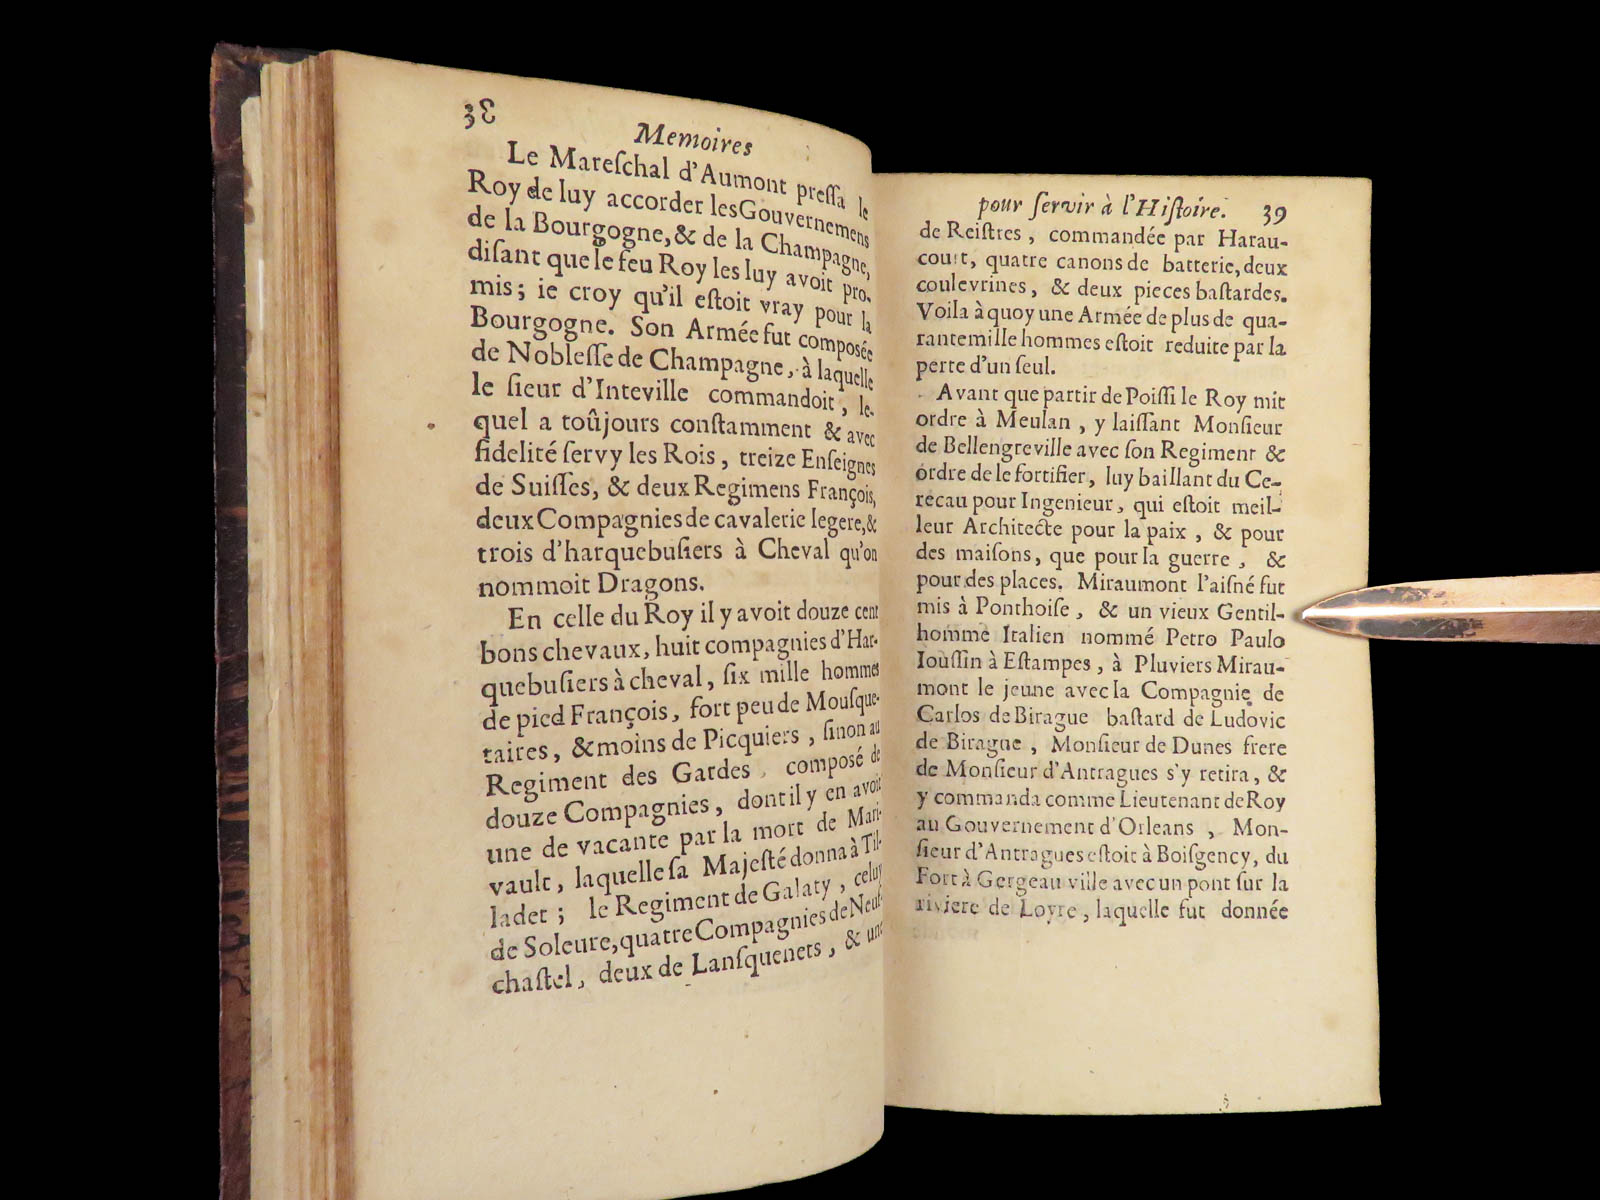 38
Memoires
Le Mareſchal d'Aumont preſſa le
Roy de luy accorder les Gouvernemens
de la Bourgogne, & de la Champagne,
diſant que le feu Roy les luy avoit pro-
mis; ie croy qu'il eſtoit vray pour la
Bourgogne. Son Armée fut composée
de Nobleſſe de Champagne, à laquelle
le ſieur d'Inteville commandoit, le-
quel a toûjours conſtamment & avec
fidelité ſervy les Rois, treize Enſeignes
de Suiſſes, & deux Regimens François,
deux Compagnies de cavalerie legere, &
trois d'harquebuſiers à Cheval qu'on
nommoit Dragons.
En celle du Roy il y avoit douze cent
bons chevaux, huit compagnies d'Har-
quebuſiers à cheval, ſix mille hommes
de pied François, fort peu de Mouſque-
taires, & moins de Picquiers, ſinon au
Regiment des Gardes, composé de
douze Compagnies, dont il y en avoit
une de vacante par la mort de Mari-
vault, laquelle ſa Majeſté donna à Til-
ladet; le Regiment de Galaty, celuy
de Soleure, quatre Compagnies de Neuf-
chaſtel, deux de Lanſquenets, & une
pour ſervir à l'Hiſtoire. 39
de Reiſtres, commandée par Harau-
court, quatre canons de batterie, deux
coulevrines, & deux pieces baſtardes.
Voila à quoy une Armée de plus de qua-
rante mille hommes eſtoit reduite par la
perte d'un ſeul.
Avant que partir de Poiſſi le Roy mit
ordre à Meulan, y laiſſant Monſieur
de Bellengreville avec ſon Regiment &
ordre de le fortifier, luy baillant du Ce-
recau pour Ingenieur, qui eſtoit meil-
leur Architecte pour la paix, & pour
des maiſons, que pour la guerre, &
pour des places. Miraumont l'aiſné fut
mis à Ponthoiſe, & un vieux Gentil-
homme Italien nommé Petro Paulo
Iouſſin à Eſtampes, à Pluviers Mirau-
mont le jeune avec la Compagnie de
Carlos de Birague baſtard de Ludovic
de Birague, Monſieur de Dunes frere
de Monſieur d'Antragues s'y retira, &
y commanda comme Lieutenant de Roy
au Gouvernement d'Orleans, Mon-
ſieur d'Antragues eſtoit à Boiſgency, du
Fort à Gergeau ville avec un pont ſur la
riviere de Loyre, laquelle fut donnée